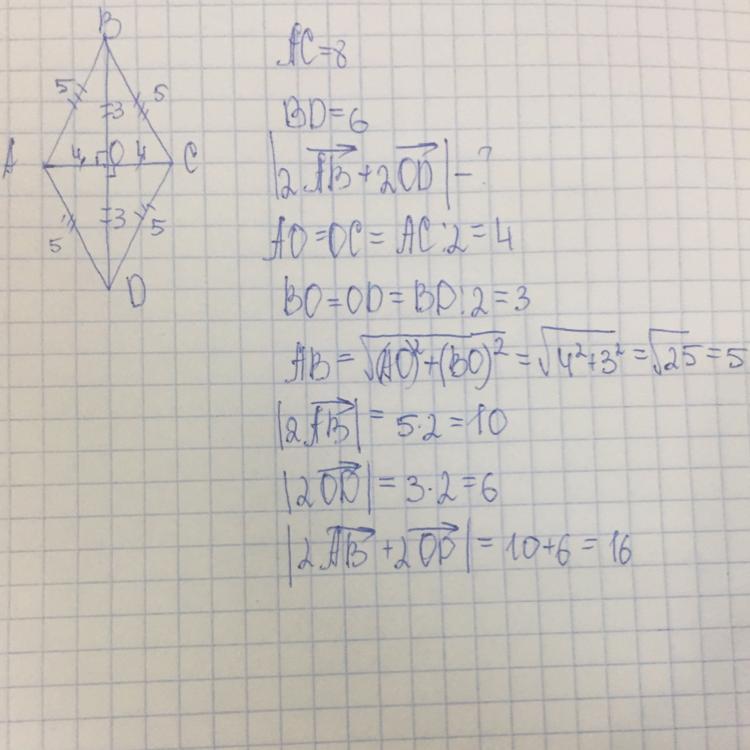 B
5 5
3
A 4 O 4 C
3
5 5
D
AC=8
BD=6
|2AB+2OD|-?
AO=OC=AC:2=4
BO=OD=BD:2=3
AB=√(AO)²+(BO)²=√4²+3²=√25=5
|2AB|=5·2=10
|2OD|=3·2=6
|2AB+2OD|=10+6=16